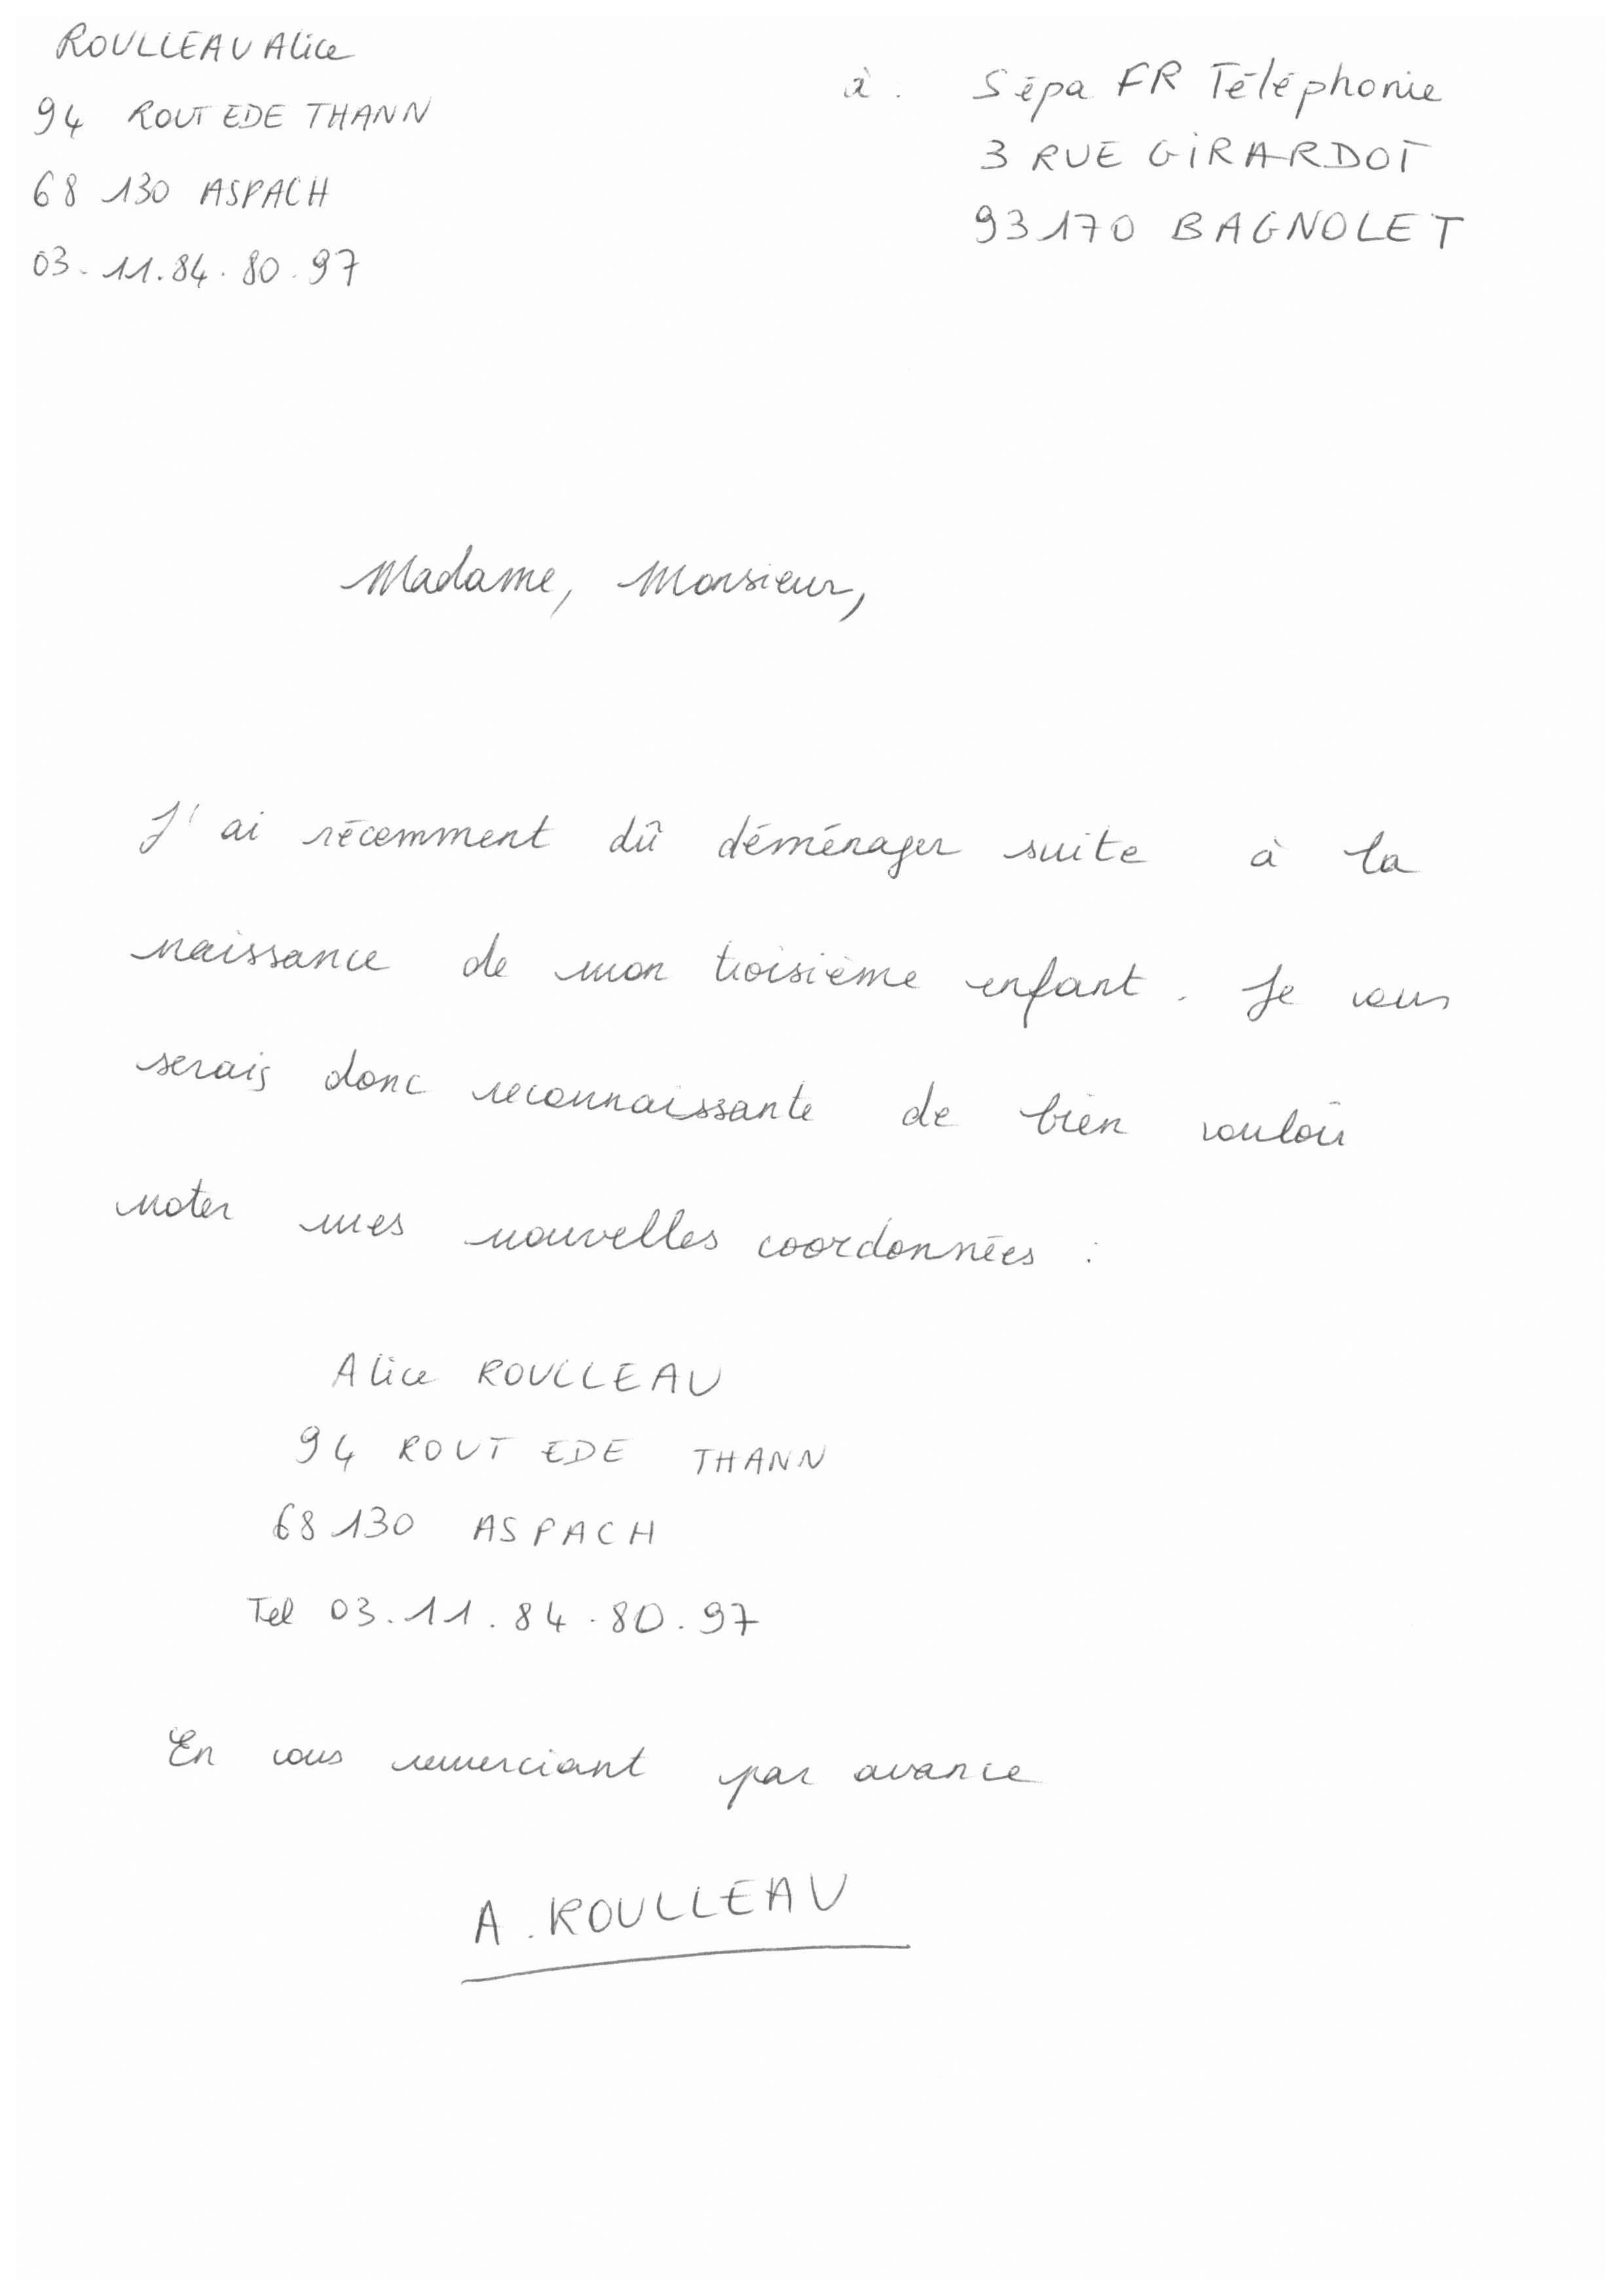 ROULLEAU Alice
94 ROUT EDE THANN
68 130 ASPACH
03.11.84.80.97
à. Sépa FR Téléphonie
3 RUE GIRARDOT
93170 BAGNOLET
Madame, Monsieur,
J'ai récemment dû déménager suite à la
naissance de mon troisième enfant. Je vous
serais donc reconnaissante de bien vouloir
noter mes nouvelles coordonnées :
Alice ROULLEAU
94 ROUT EDE THANN
68130 ASPACH
Tel 03.11.84.80.97
En vous remerciant par avance
A. ROULLEAU